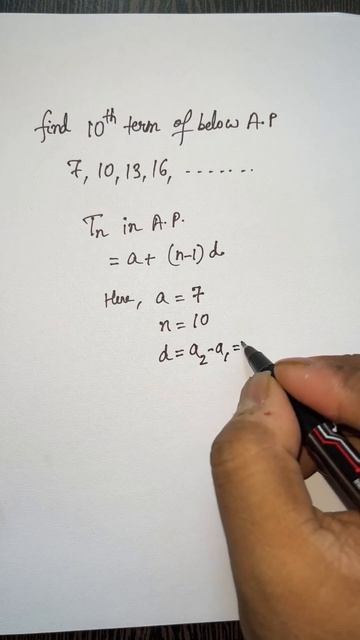 find 10th term of below A.P
7, 10, 13, 16, .......
Tn in A.P.
= a + (n-1) d.
Here, a = 7
n = 10
d = a2 - a1 =